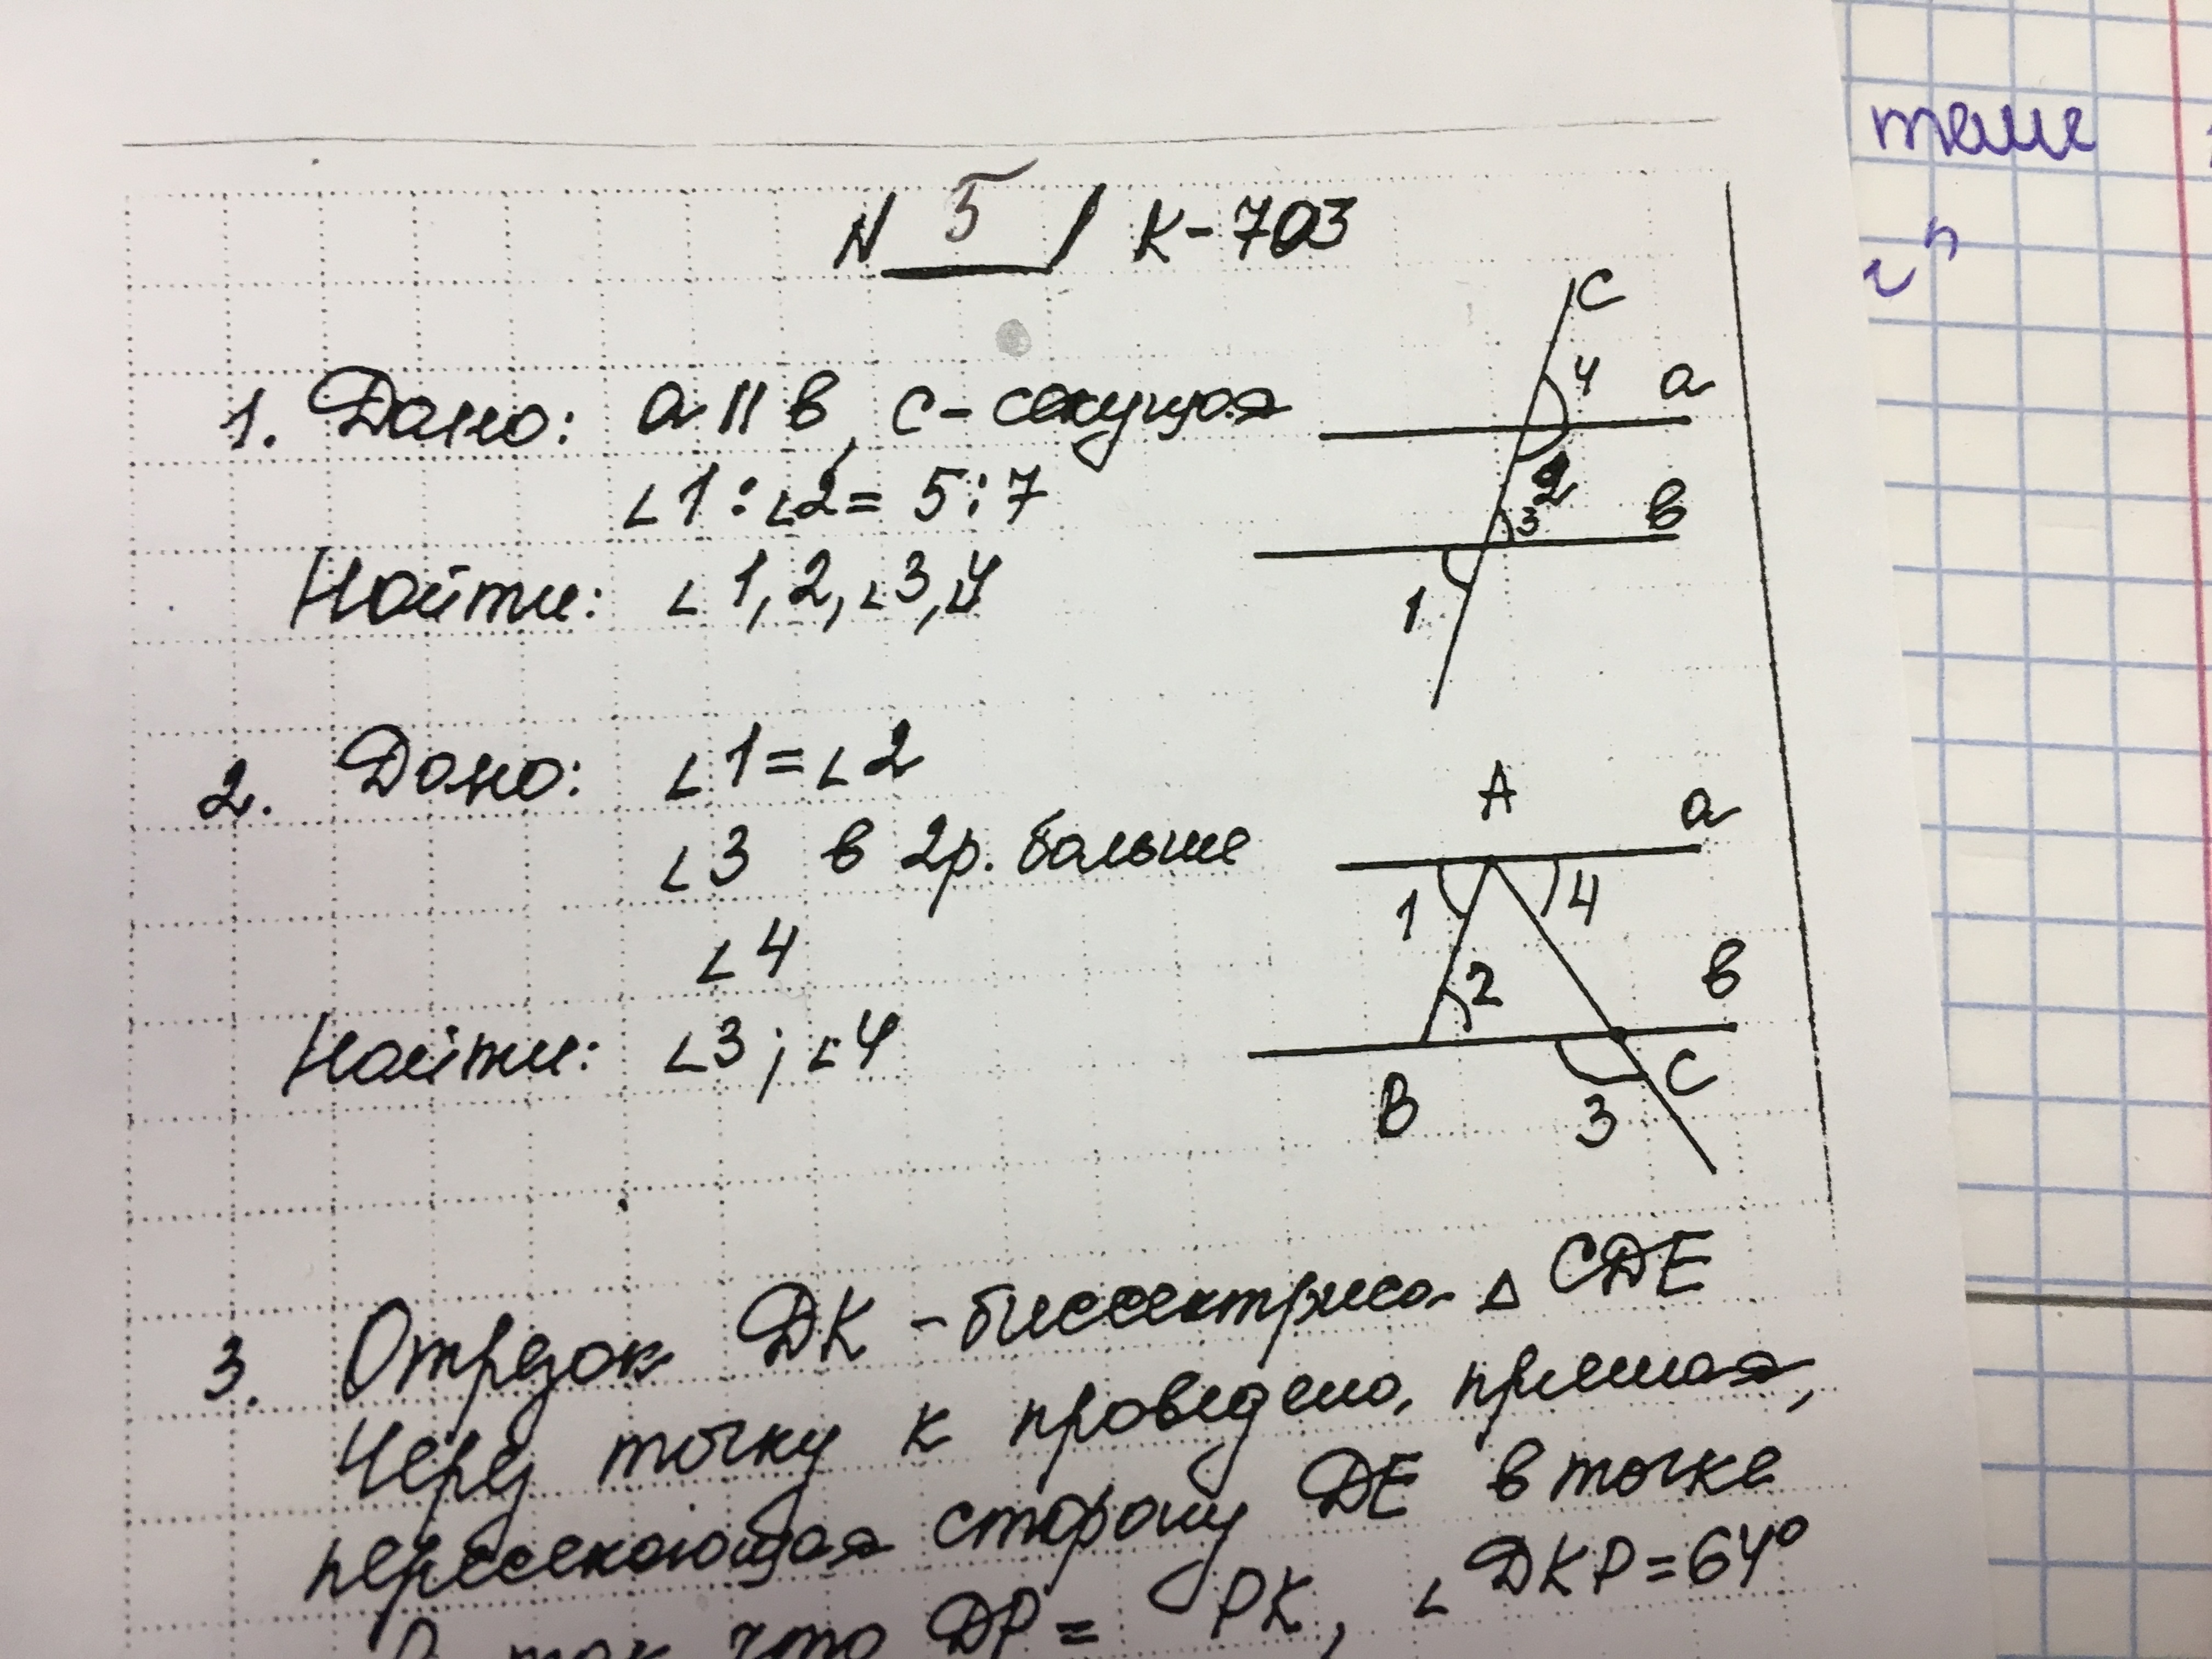 N 5 / К-703
1. Дано: a || в, c - секущая
∠1 : ∠2 = 5 : 7
Найти: ∠1, 2, ∠3, 4
c
4
a
2
3
в
1
2. Дано: ∠1 = ∠2
∠3 в 2р. больше
∠4
Найти: ∠3; ∠4
A
a
1
4
2
в
B
3
C
3. Отрезок DK - биссектриса △ CDE
Через точку K проведена прямая,
пересекающая сторону DE в точке
P так что DP = PK, ∠DKP = 64°
теме